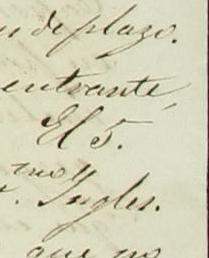 n de plazo.
entrante,
El 5.
mo
r. Ingles.
que no